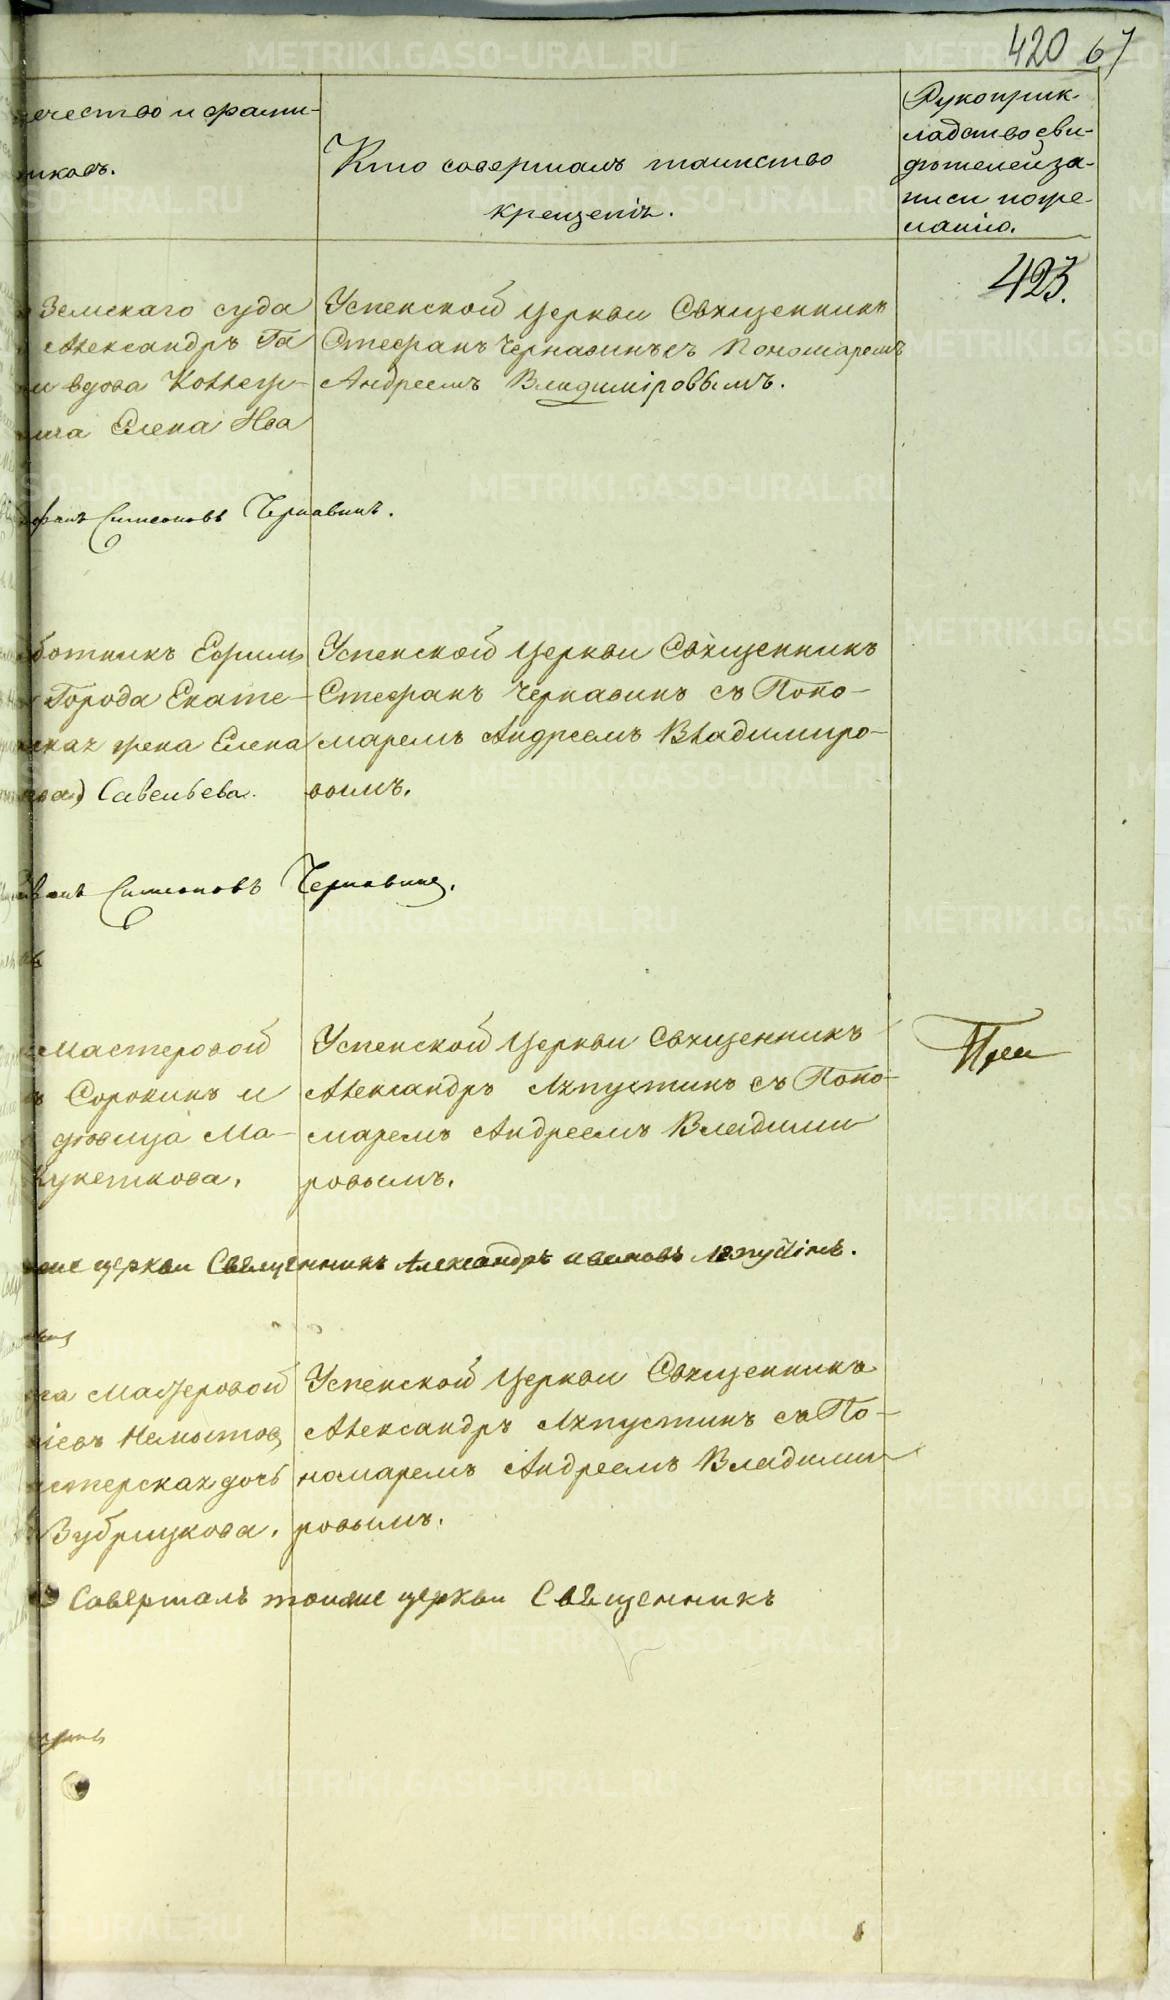 420 67
ечество и фами-
никовъ.
Кто совершалъ таинство
крещенія.
Рукоприк-
ладство сви-
дѣтелей за-
писи поже-
ланію.
423.
Земскаго суда
Александръ Га
и вдова Коллеж-
Елена Ива
Успенской Церкви Священникъ
Стефанъ Чернавинъ съ Пономаремъ
Андреемъ Владиміровымъ.
фанъ Симеоновъ Чернавинъ.
ботникъ Ефимъ
Города Екате-
ская жена Елена
Савельева.
Успенской Церкви Священникъ
Стефанъ Чернавинъ съ Поно-
маремъ Андреемъ Владимиро-
вымъ.
Симеоновъ Чернавинъ.
Мастеровой
Сорокинъ и
дѣвица Ма-
Кукеткова.
Успенской Церкви Священникъ
Александръ Ляпустинъ съ Поно-
маремъ Андреемъ Владими
ровымъ.
церкви Священникъ Александръ Ивановъ Ляпустинъ.
Мастеровой
Немытов
мастерская дочь
Зубрицкова.
Успенской Церкви Священникъ
Александръ Ляпустинъ съ По-
номаремъ Андреемъ Владими
ровымъ.
Совершалъ тоиже церкви Священникъ
METRIKI.GASO-URAL.RU